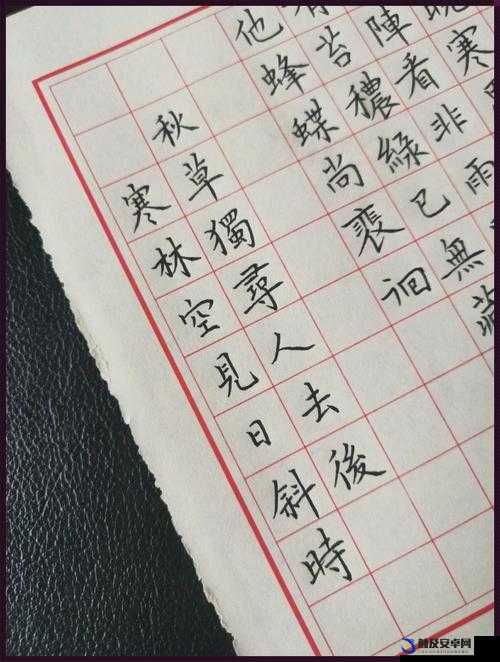 寒
陣看非雨
苔穠綠已無
他蜂蝶尚裵洄
秋草獨尋人去後
寒林空見日斜時
觸及安卓网